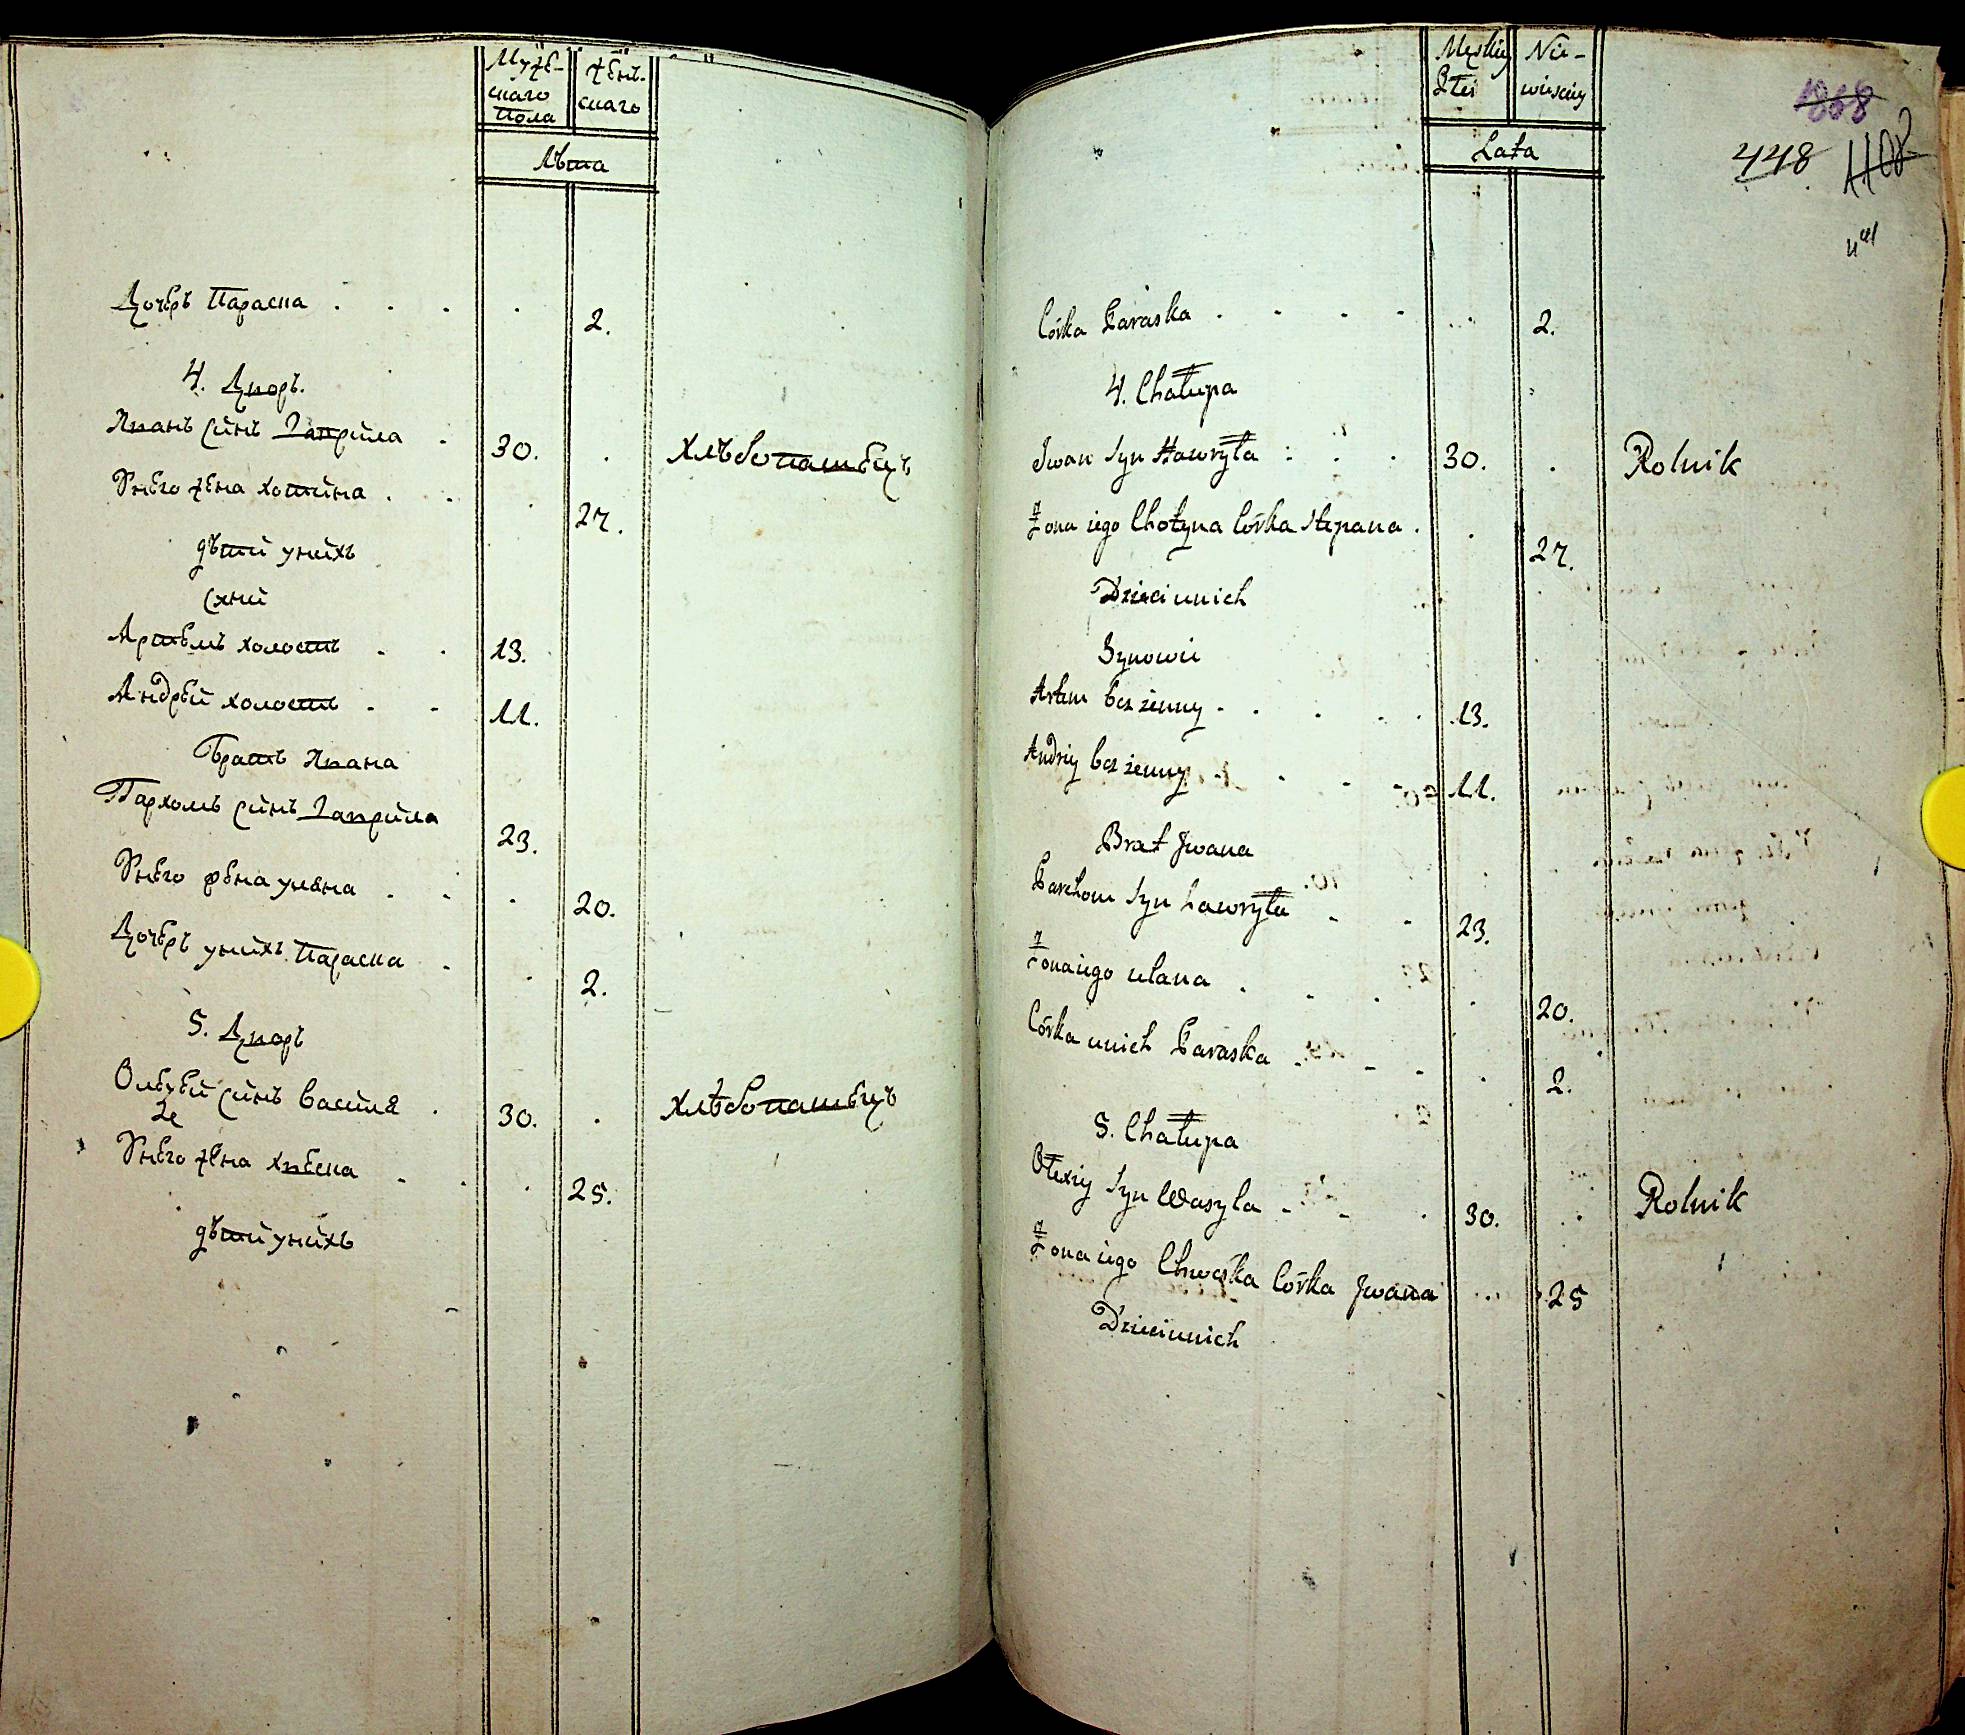 Муже-
скаго
Пола
жен-
скаго
лѣта
Дочерь Параска . . . . 2.
4. Дворъ.
Иванъ синъ Гаврила . 30. . хлѣбопашецъ
Унего жена хотина . . . 27.
дѣти унихъ
сини
Артемъ холостъ . . 13.
Андрей холостъ . . 11.
Братъ Ивана
Пархомъ синъ Гаврила 23.
Унего жена уляна . . . 20.
Дочерь унихъ Параска . . 2.
5. Дворъ
Олексей синъ Василя . 30. . хлѣбопашецъ
Унего жена хвеска . . . 25.
дѣти унихъ
Męskiey
Płci
Nie-
wieściey
Lata
1868
448 1108
Córka Paraska . . . . . . 2.
4. Chałupa
Jwan Syn Hawryła . . . 30. . Rolnik
Żona iego Chotyna Córka Stepana . . 27.
Dzieci unich
Synowie
Artem bezżenny . . . . . 13.
Andriy bezżenny . . . . 11.
Brat Jwana
Parchom Syn Hawryła . . 23.
Żona iego ulana . . . . 20.
Córka unich Paraska . . . . 2.
5. Chałupa
Ołexiy Syn Wasyla . . . 30. . Rolnik
Żona iego Chweśka Córka Jwana . . . 25
Dzieci unich